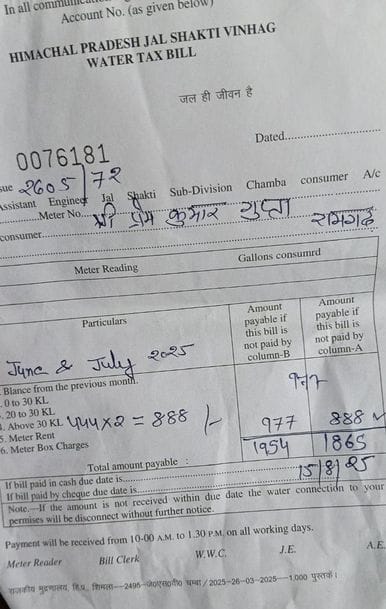 In all communication
Account No. (as given below)
HIMACHAL PRADESH JAL SHAKTI VINHAG
WATER TAX BILL
जल ही जीवन है
Dated
0076181
sue 2605/72
Assistant Engineer Jal Shakti Sub-Division Chamba consumer A/c
Meter No. श्री प्रेम कुमार गुप्ता रामगढ़
consumer
Meter Reading Gallons consumrd
Particulars
Amount payable if this bill is not paid by column-B
Amount payable if this bill is not paid by column-A
June & July 2025
Blance from the previous month.
977
0 to 30 KL
20 to 30 KL
Above 30 KL 444x2 = 888 /- 977 888
5. Meter Rent
6. Meter Box Charges 1954 1865
Total amount payable :
If bill paid in cash due date is 15/8/25
If bill paid by cheque due date is
Note.—If the amount is not received within due date the water connection to your
permises will be disconnect without further notice.
Payment will be received from 10-00 A.M. to 1.30 P.M. on all working days.
Meter Reader Bill Clerk W.W.C. J.E. A.E.
राजकीय मुद्रणालय, हि.प्र., शिमला—2495-ज०एस०पी० चम्बा/2025-26-03-2025—1,000 पुस्तकें।